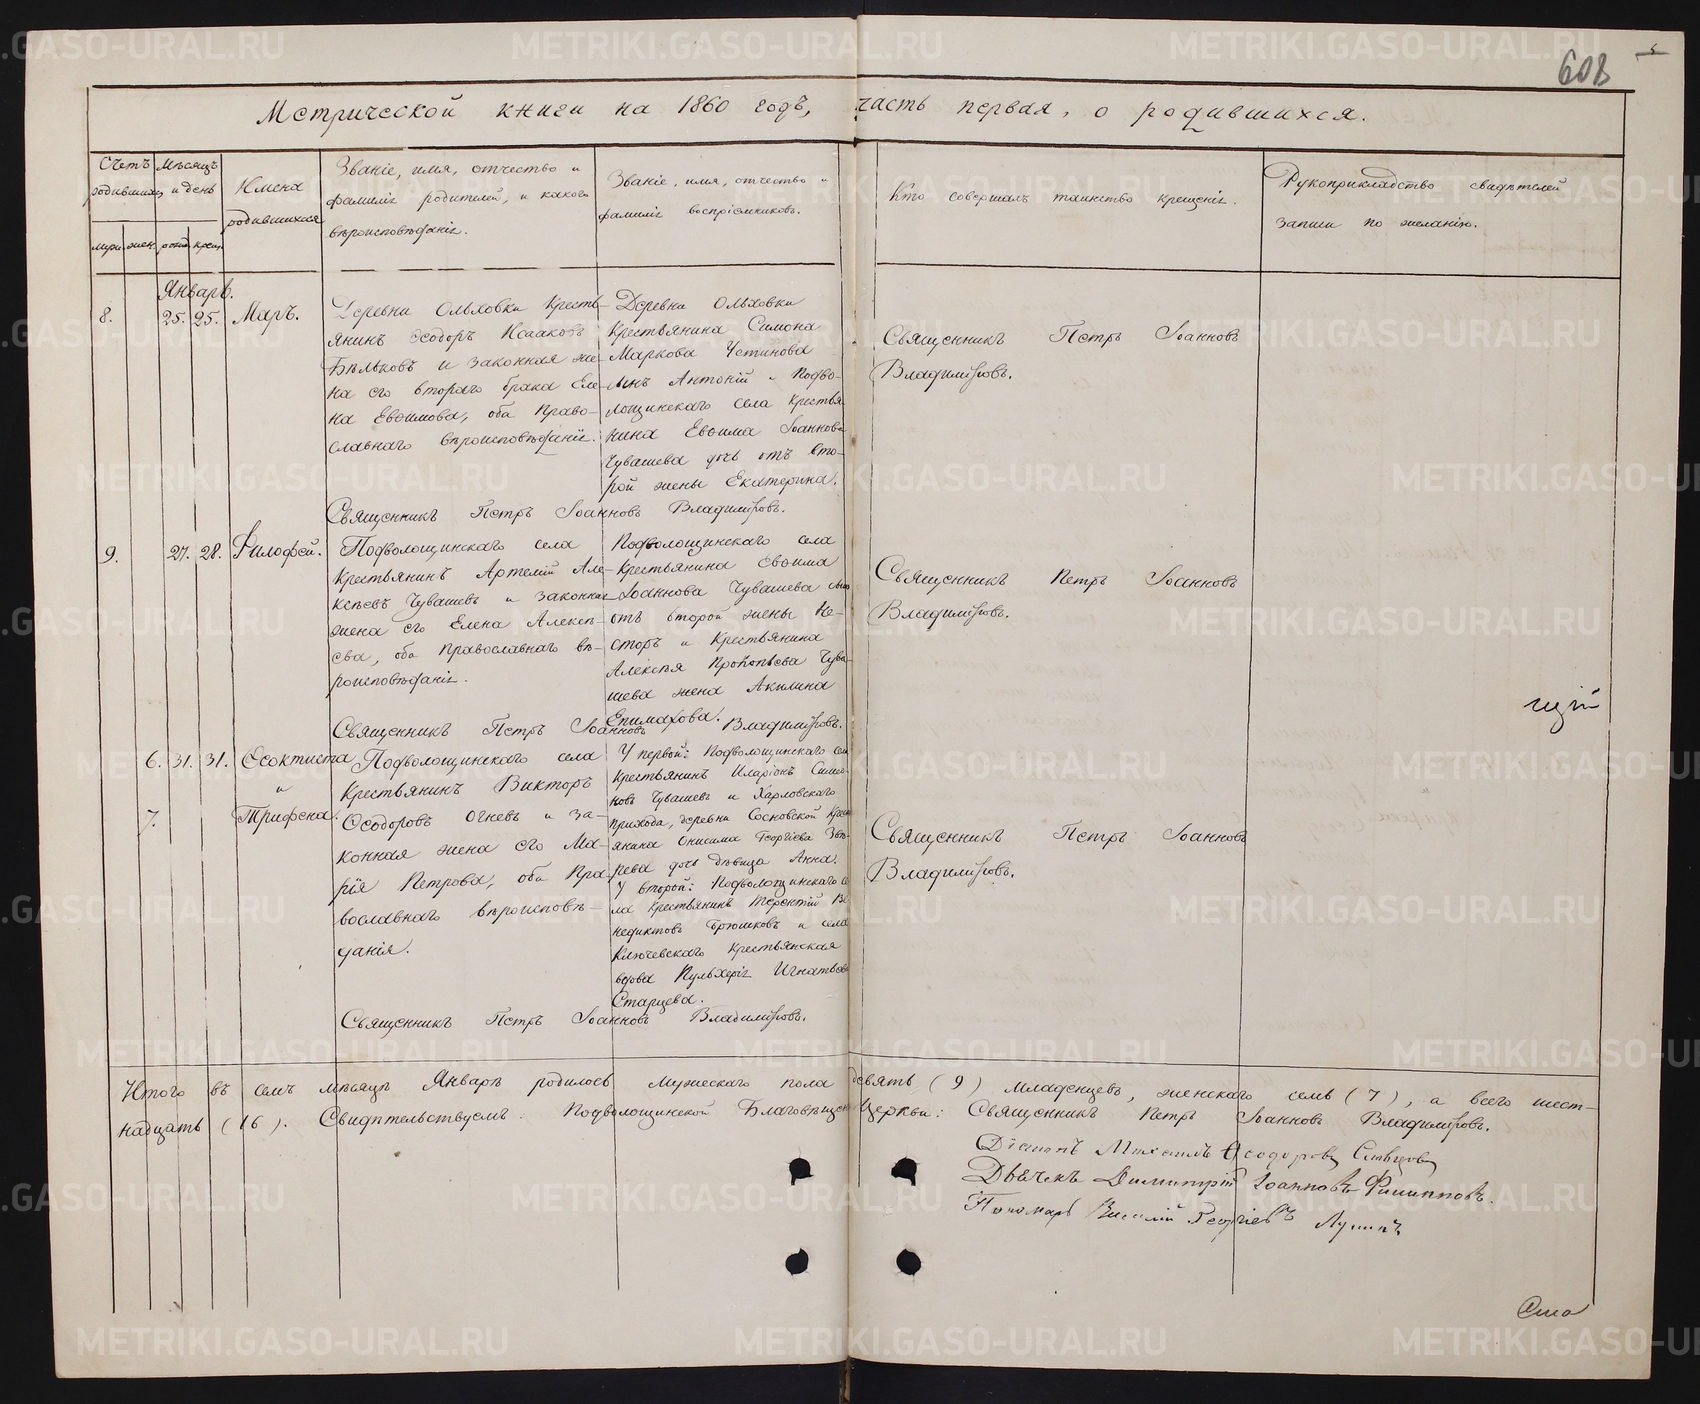 608
5
Метрической книги на 1860 годъ, часть первая, о родившихся.
Счетъ родившихся
Мѣсяцъ и день
Имена родившихся
Званіе, имя, отчество и
фамилія родителей, и какого
вѣроисповѣданія.
Званіе, имя, отчество и
фамилія воспріемниковъ.
Кто совершалъ таинство крещенія.
Рукоприкладство свидѣтелей
записи по желанію.
муж. жен. рожд. крещ.
Январь.
8. 25. 25. Маръ.
Деревни Ольховки кресть-
янинъ Ѳеодоръ Исааковъ
Бѣльковъ и законная же-
на его втораго брака Еле-
на Евѳимова, оба право-
славнаго вѣроисповѣданія.
Деревни Ольховки
крестьянина Симона
Маркова Устинова
сынъ Антоній и Подво-
лощинскаго села крестья-
нина Евѳима Іоаннова
Чувашева дочь отъ вто-
рой жены Екатерина.
Священникъ Петръ Іоанновъ
Владиміровъ.
Священникъ Петръ Іоанновъ Владиміровъ.
9. 27. 28. Филофей.
Подволощинскаго села
крестьянинъ Артемій Але-
ксѣевъ Чувашевъ и законная
жена его Елена Алексѣ-
ева, оба православнаго вѣ-
роисповѣданія.
Подволощинскаго села
крестьянина Евѳима
Іоаннова Чувашева сынъ
отъ второй жены Не-
сторъ и крестьянина
Алексѣя Прокопьева Чува-
шева жена Акилина
Епимахова.
Священникъ Петръ Іоанновъ
Владиміровъ.
Священникъ Петръ Іоанновъ Владиміровъ.
щій
6. 31. 31. Ѳеоктиста
и
7. Трифена.
Подволощинскаго села
крестьянинъ Викторъ
Ѳеодоровъ Огневъ и за-
конная жена его Ма-
рія Петрова, оба пра-
вославнаго вѣроисповѣ-
данія.
У первой: Подволощинскаго села
крестьянинъ Иларіонъ Симео-
новъ Чувашевъ и Харловскаго
прихода, деревни Сосновской крест-
янина Онисима Георгіева Звѣ-
рева дочь дѣвица Анна.
У второй: Подволощинскаго се-
ла крестьянинъ Терентій Ве-
недиктовъ Брюшковъ и села
Ключевскаго крестьянская
вдова Пульхерія Игнатьева
Старцева.
Священникъ Петръ Іоанновъ
Владиміровъ.
Священникъ Петръ Іоанновъ Владиміровъ.
Итого въ семъ мѣсяцѣ Январѣ родилось мужескаго пола девять (9) младенцевъ, женскаго семь (7), а всего шест-
надцать (16). Свидѣтельствуемъ: Подволощинской Благовѣщенской церкви: Священникъ Петръ Іоанновъ Владиміровъ.
Діаконъ Михаилъ Ѳеодоровъ
Дьячекъ Димитрій Іоанновъ Филипповъ.
Пономарь Василій Георгіевъ Лупинъ
Сма
METRIKI.GASO-URAL.RU